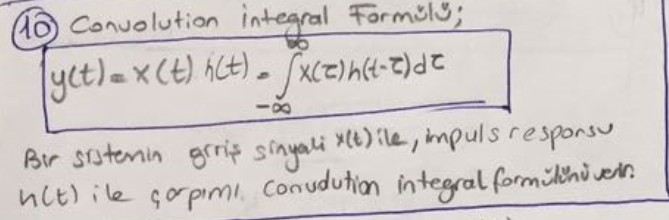 ⑩ Convolution integral Formülü;
y(t) = x(t) h(t) = ∫_{-∞}^{∞} x(τ)h(t-τ)dτ
Bir sistemin giriş sinyali x(t) ile, impuls responsu
h(t) ile çarpımı. convdution integral formülünü verir.